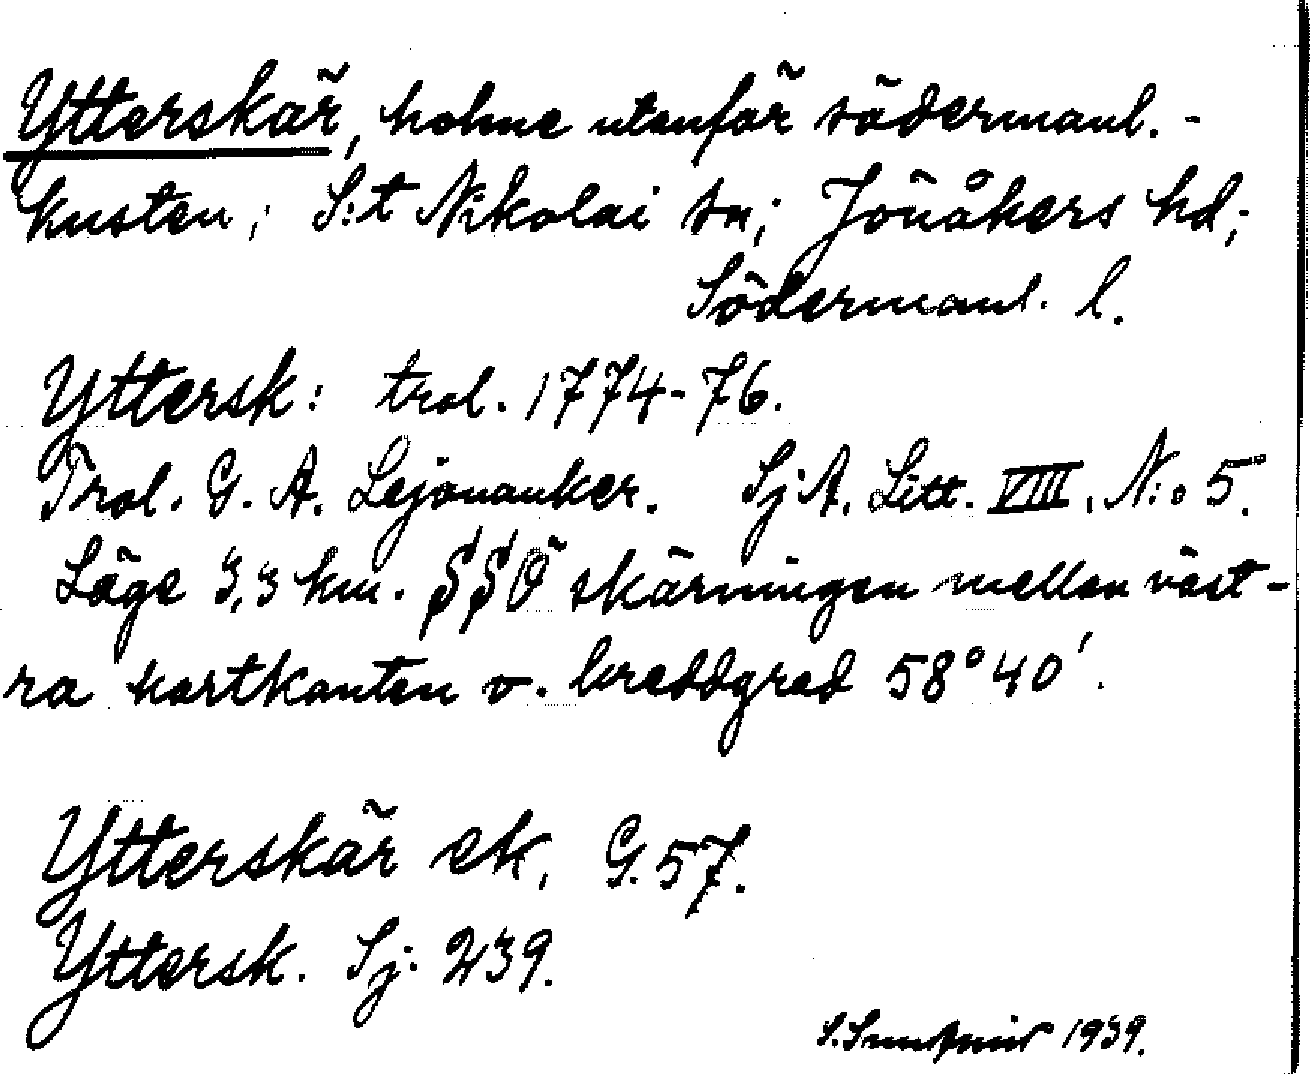 Ytterskär, holme utanför södermanl.-
kusten; S:t Nikolai sn; Jönåkers hd;
Södermanl. l.
Yttersk: trol. 1774-76.
Trol. G. A. Lejonanker. Sj.A. Litt. VIII. N:o 5.
Läge 3,3 km. SSÖ skärningen mellan väst-
ra kartkanten o. breddgrad 58° 40'.
Ytterskär ek, G. 57.
Yttersk. Sj: 239.
1939.